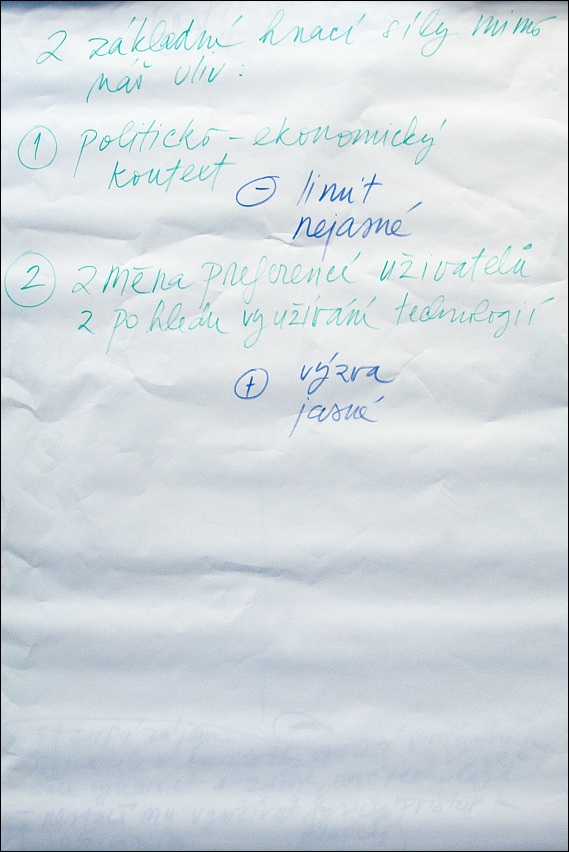 2 základní hnací síly mimo
náš vliv:
① politicko-ekonomický
kontext
⊖ limit
nejasné
② změna preferencí uživatelů
z pohledu využívání technologií
⊕ výzva
jasné